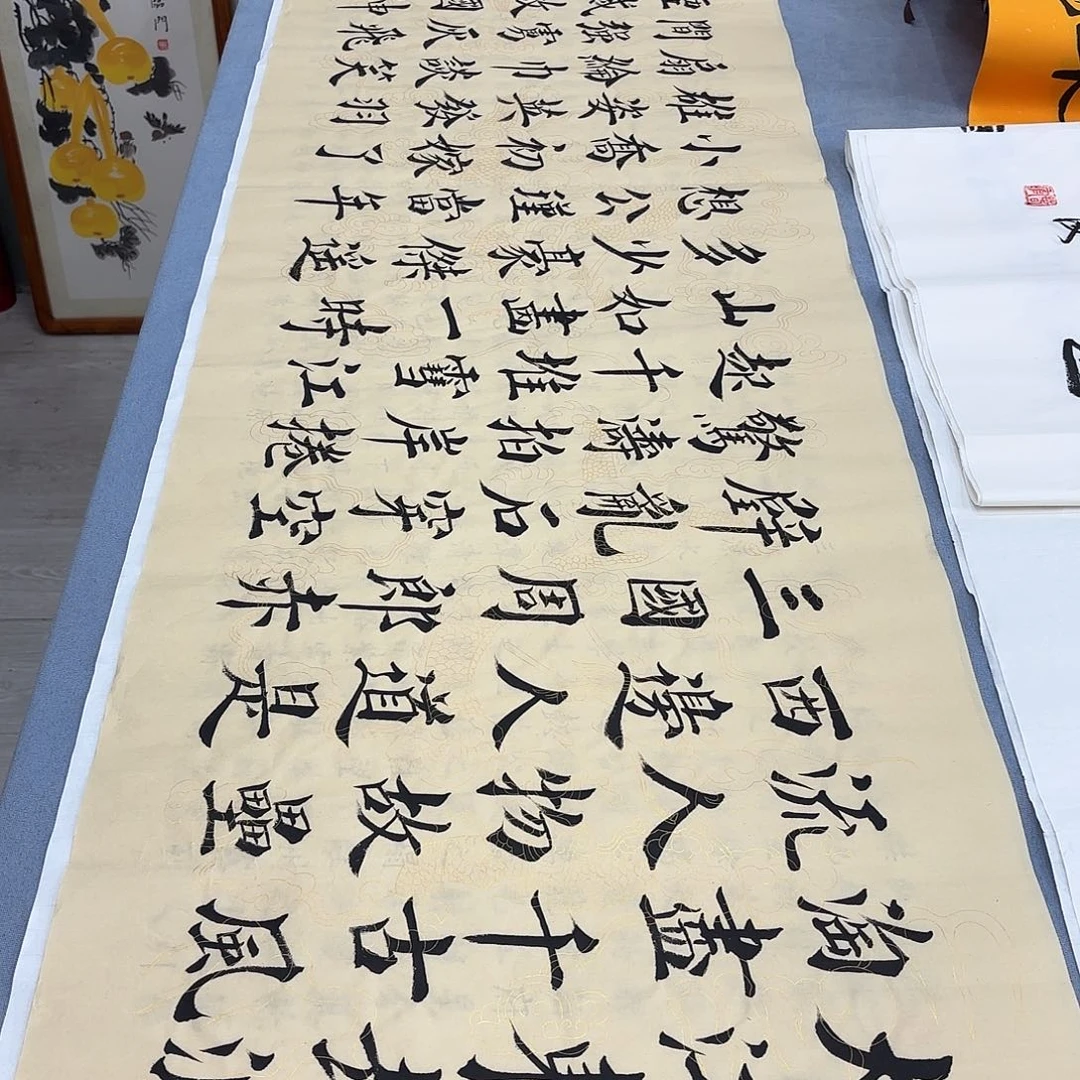 大江東去浪
淘盡千古風
流人物故壘
西邊人道是
三國周郎赤
壁亂石穿空
驚濤拍岸捲
起千堆雪江
山如畫一時
多少豪傑遙
想公瑾當年
小喬初嫁了
雄姿英發羽
扇綸巾談笑
間强虜灰飛
滅故國神